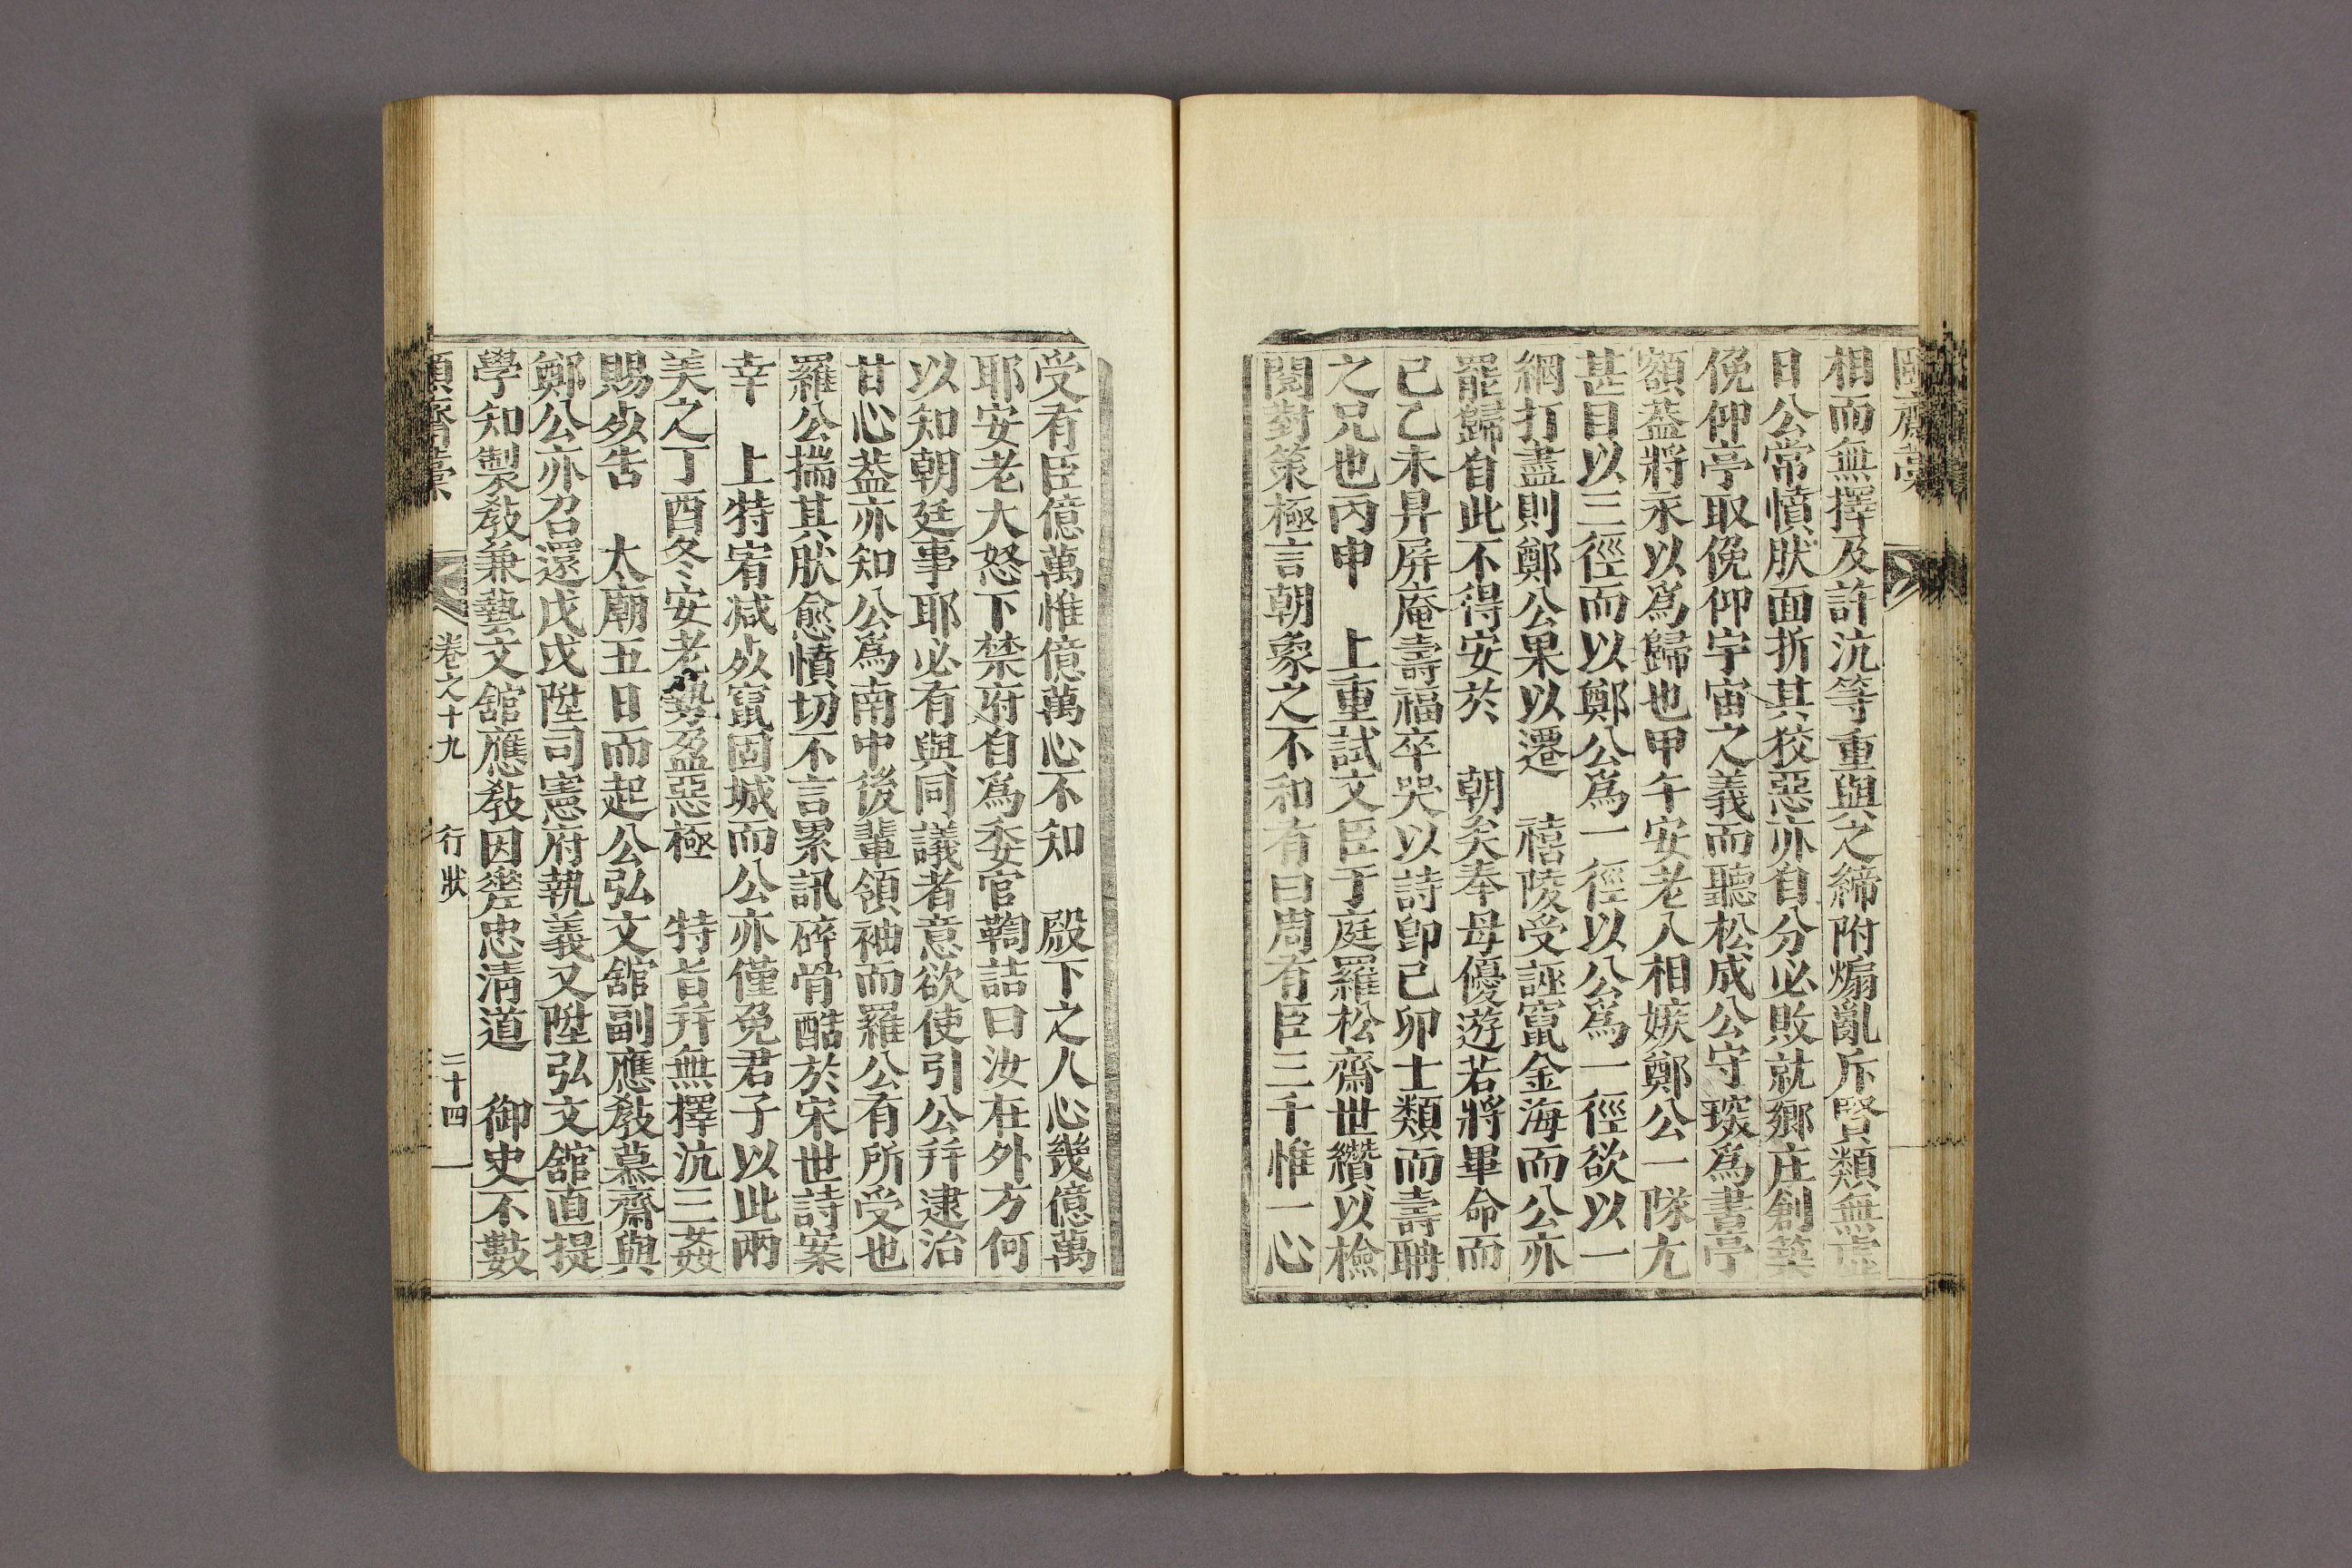 頤齋藁
相而無擇及許沆等重與之締附煽亂斥賢類無虛
日公常憤肰面折其狡惡亦自分必敗就鄉庄創築
俛仰亭取俛仰宇宙之義而聽松成公守琛爲書亭
額葢將永以爲歸也甲午安老入相嫉鄭公一隊尢
甚目以三徑而以鄭公爲一徑以公爲一徑欲以一
網打盡則鄭公果以遷 禧陵受誣竄金海而公亦
罷歸自此不得安於 朝矣奉母優遊若將畢命而
己乙未昇屏庵壽福卒哭以詩卽己卯士類而壽聃
之兄也丙申 上重試文臣于庭羅松齋世纘以檢
閱對策極言朝象之不和有曰周有臣三千惟一心
受有臣億萬惟億萬心不知 殿下之人心幾億萬
耶安老大怒下禁府自爲委官鞫詰曰汝在外方何
以知朝廷事耶必有與同議者意欲使引公幷逮治
甘心葢亦知公爲南中後輩領袖而羅公有所受也
羅公揣其肰愈憤切不言累訊碎骨酷於宋世詩案
幸 上特宥减㱔竄固城而公亦僅免君子以此兩
美之丁酉冬安老勢盈惡極 特旨幷無擇沆三姦
賜㱔告 太廟五日而起公弘文舘副應敎慕齋與
鄭公亦召還戊戌陞司憲府執義又陞弘文舘直提
學知製敎兼藝文舘應敎因嵳忠淸道 御史不數
頤齋藁 卷之十九 行狀 二十四